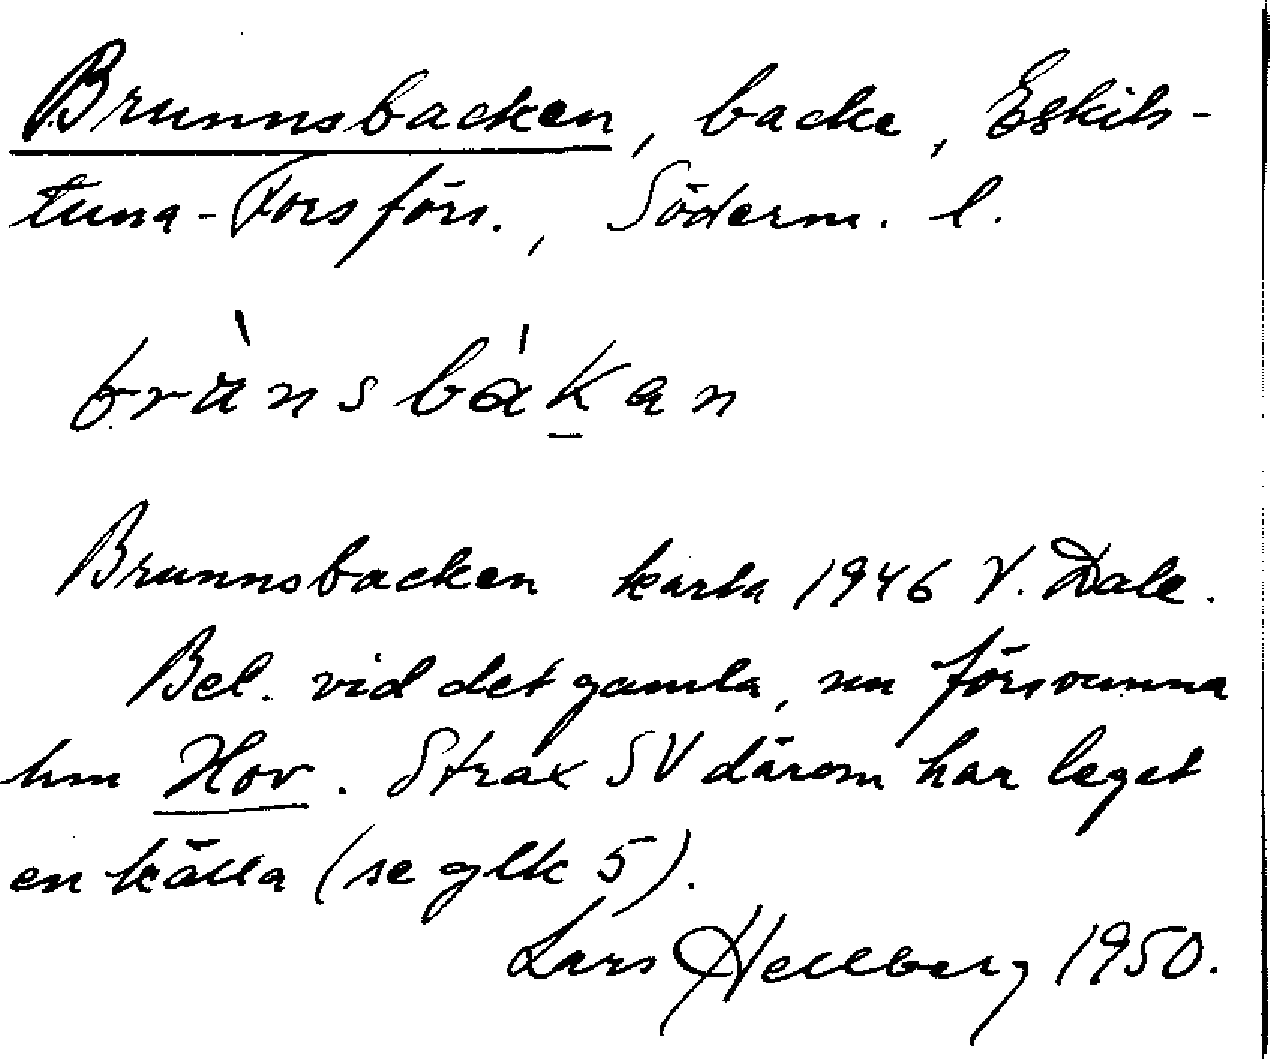 Brunnsbacken, backe, Eskils-
tuna-Fors förs., Söderm. l.
brùnsbákan
Brunnsbacken karta 1946 V. Dale.
Bel. vid det gamla, nu försvunna
hm Hov. Strax SV därom har legat
en källa (se glk 5).
Lars Hellberg 1950.